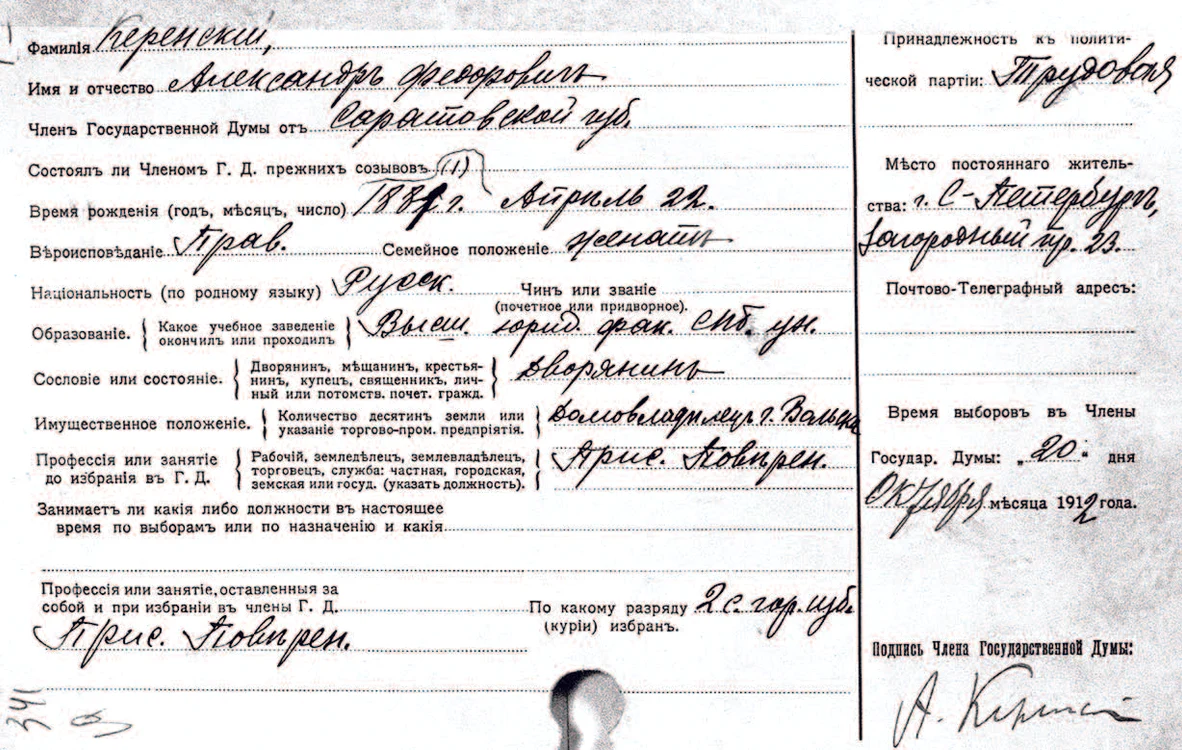 Фамилія Керенскій,
Имя и отчество Александръ Федоровичъ
Членъ Государственной Думы отъ Саратовской губ.
Состоялъ ли Членомъ Г. Д. прежнихъ созывовъ (1)
Время рожденія (годъ, мѣсяцъ, число) 1881 г. Апрѣль 22.
Вѣроисповѣданіе Прав. Семейное положеніе женатъ
Національность (по родному языку) Русск. Чинъ или званіе
(почетное или придворное).
Образованіе. Какое учебное заведеніе Высш. юрид. фак. СПб. ун.
окончилъ или проходилъ
Сословіе или состояніе. Дворянинъ, мѣщанинъ, крестья-
нинъ, купецъ, священникъ, лич-
ный или потомств. почет. гражд. Дворянинъ
Имущественное положеніе. Количество десятинъ земли или
указаніе торгово-пром. предпріятія. Домовладѣлецъ г. Вольска
Профессія или занятіе
до избранія въ Г. Д. Рабочій, земледѣлецъ, землевладѣлецъ,
торговецъ, служба: частная, городская,
земская или госуд. (указать должность). Прис. Повѣрен.
Занимаетъ ли какія либо должности въ настоящее
время по выборамъ или по назначенію и какія
Профессія или занятіе, оставленныя за
собой и при избраніи въ члены Г. Д.
Прис. Повѣрен.
По какому разряду 2 с. гор. изб.
(куріи) избранъ.
341
Принадлежность къ полити-
ческой партіи: Трудовая
Мѣсто постояннаго житель-
ства: г. С-Петербургъ,
Загородный пр. 23.
Почтово-Телеграфный адресъ:
Время выборовъ въ Члены
Государ. Думы: „20" дня
Октября мѣсяца 1912 года.
Подпись Члена Государственной Думы:
А. Керенскій